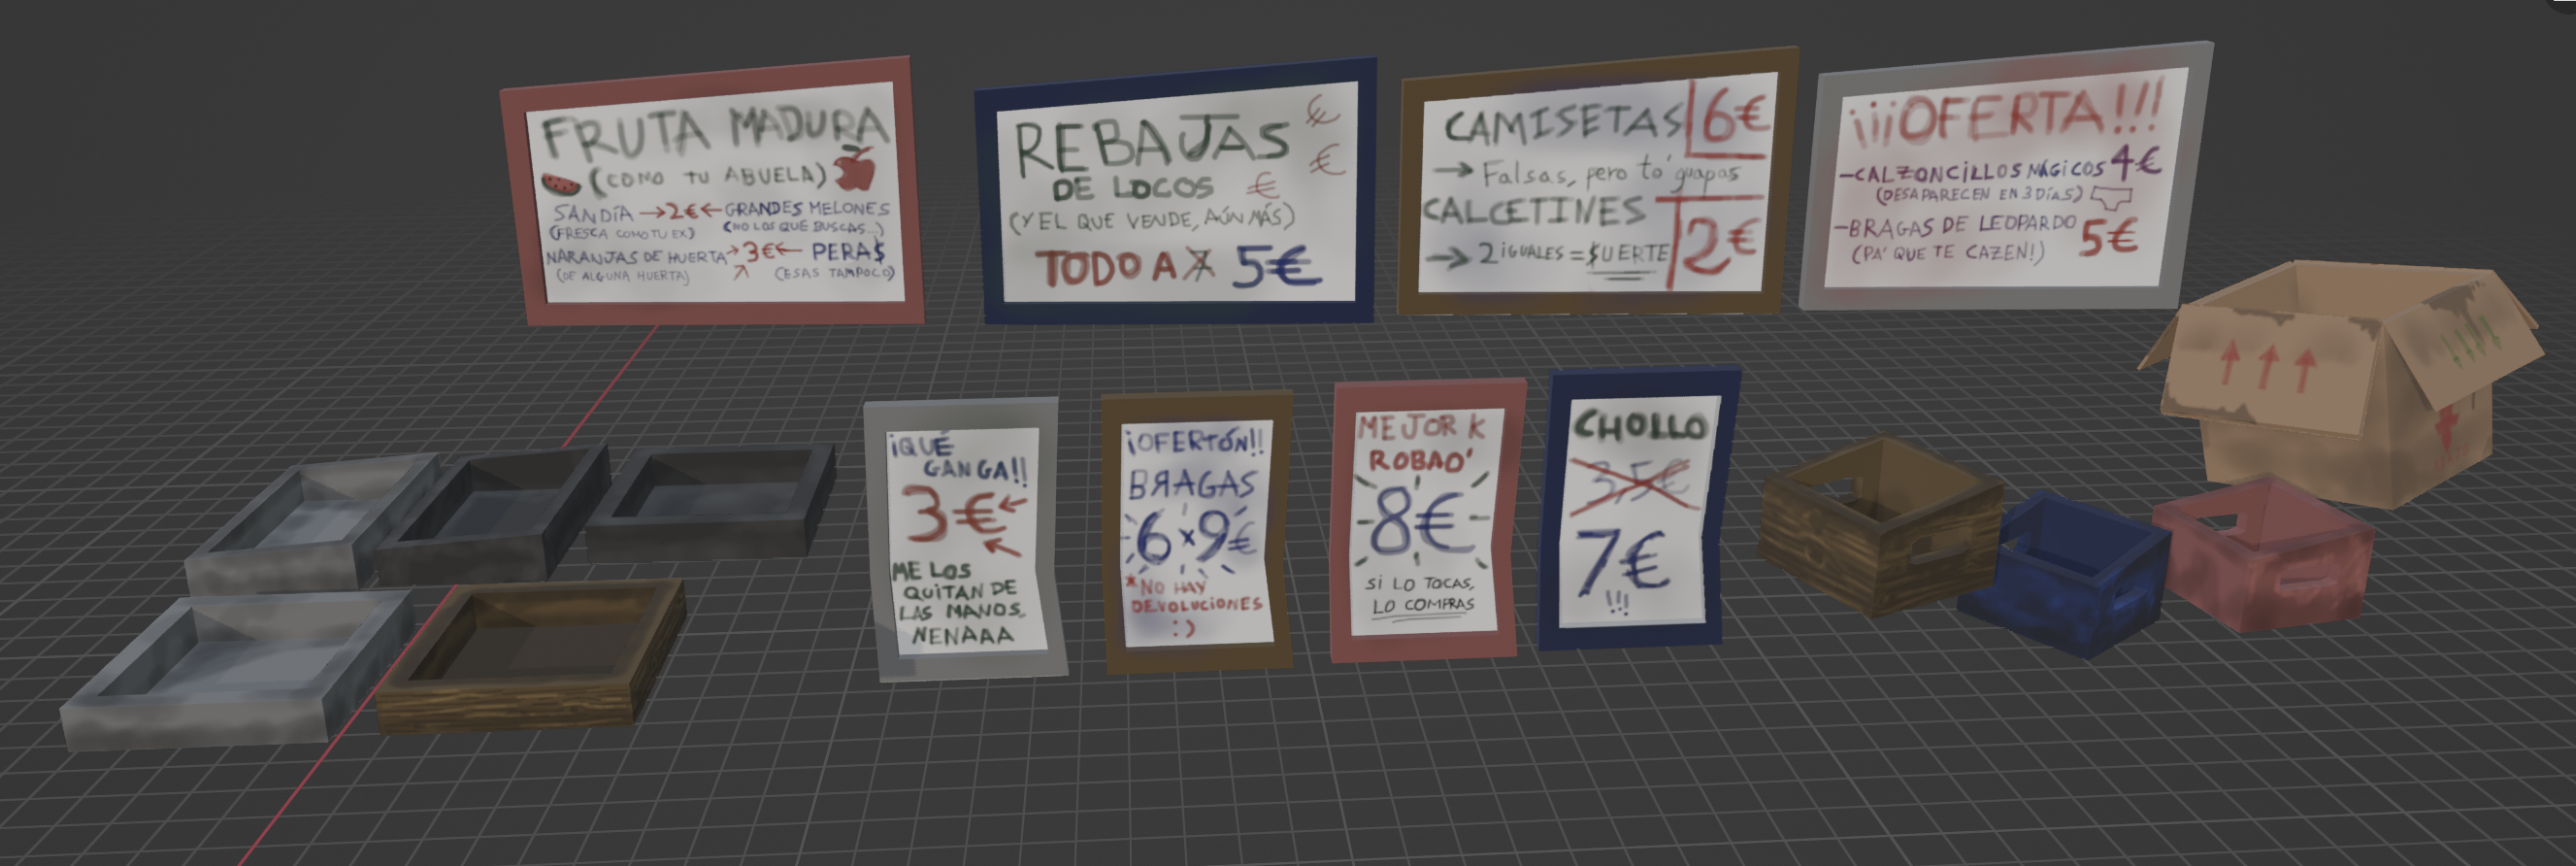 FRUTA MADURA
(COMO TU ABUELA)
SANDÍA → 2€ ← GRANDES MELONES
(FRESCA COMO TU EX) (NO LOS QUE BUSCAS...)
NARANJAS DE HUERTA → 3€ ← PERAS
(DE ALGUNA HUERTA) (ESAS TAMPOCO)
REBAJAS
DE LOCOS
€
€
€
(Y EL QUE VENDE, AÚN MÁS)
TODO A 7 5€
CAMISETAS 6€
→ Falsas, pero to' guapas
CALCETINES
→ 2 iGUALES = SUERTE 2€
¡¡¡OFERTA!!!
-CALZONCiLLOS MÁGiCOS 4€
(DESAPARECEN EN 3 DÍAS)
-BRAGAS DE LEOPARDO 5€
(PA' QUE TE CAZEN!)
¡QUÉ
GANGA!!
3€ ←
ME LOS
QUiTAN DE
LAS MANOS,
NENAAA
¡OFERTÓN!!
BRAGAS
6x9€
*NO HAY
DEVOLUCiONES
:)
MEJOR K
ROBAO'
8€
Si LO TOCAS,
LO COMPRAS
CHOLLO
3,5€
7€
!!!